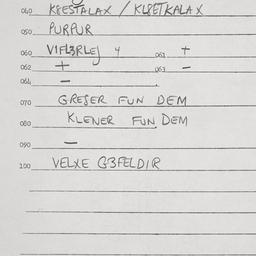 040 KREESTALAX / KLRETKALAX
050 PURPUR
060 VIFLBRLEJ 4 061 +
062 + 063 -
064 -
070 GRESER FUN DEM
080 KLENER FUN DEM
090 -
100 VELXE GBFELDIR